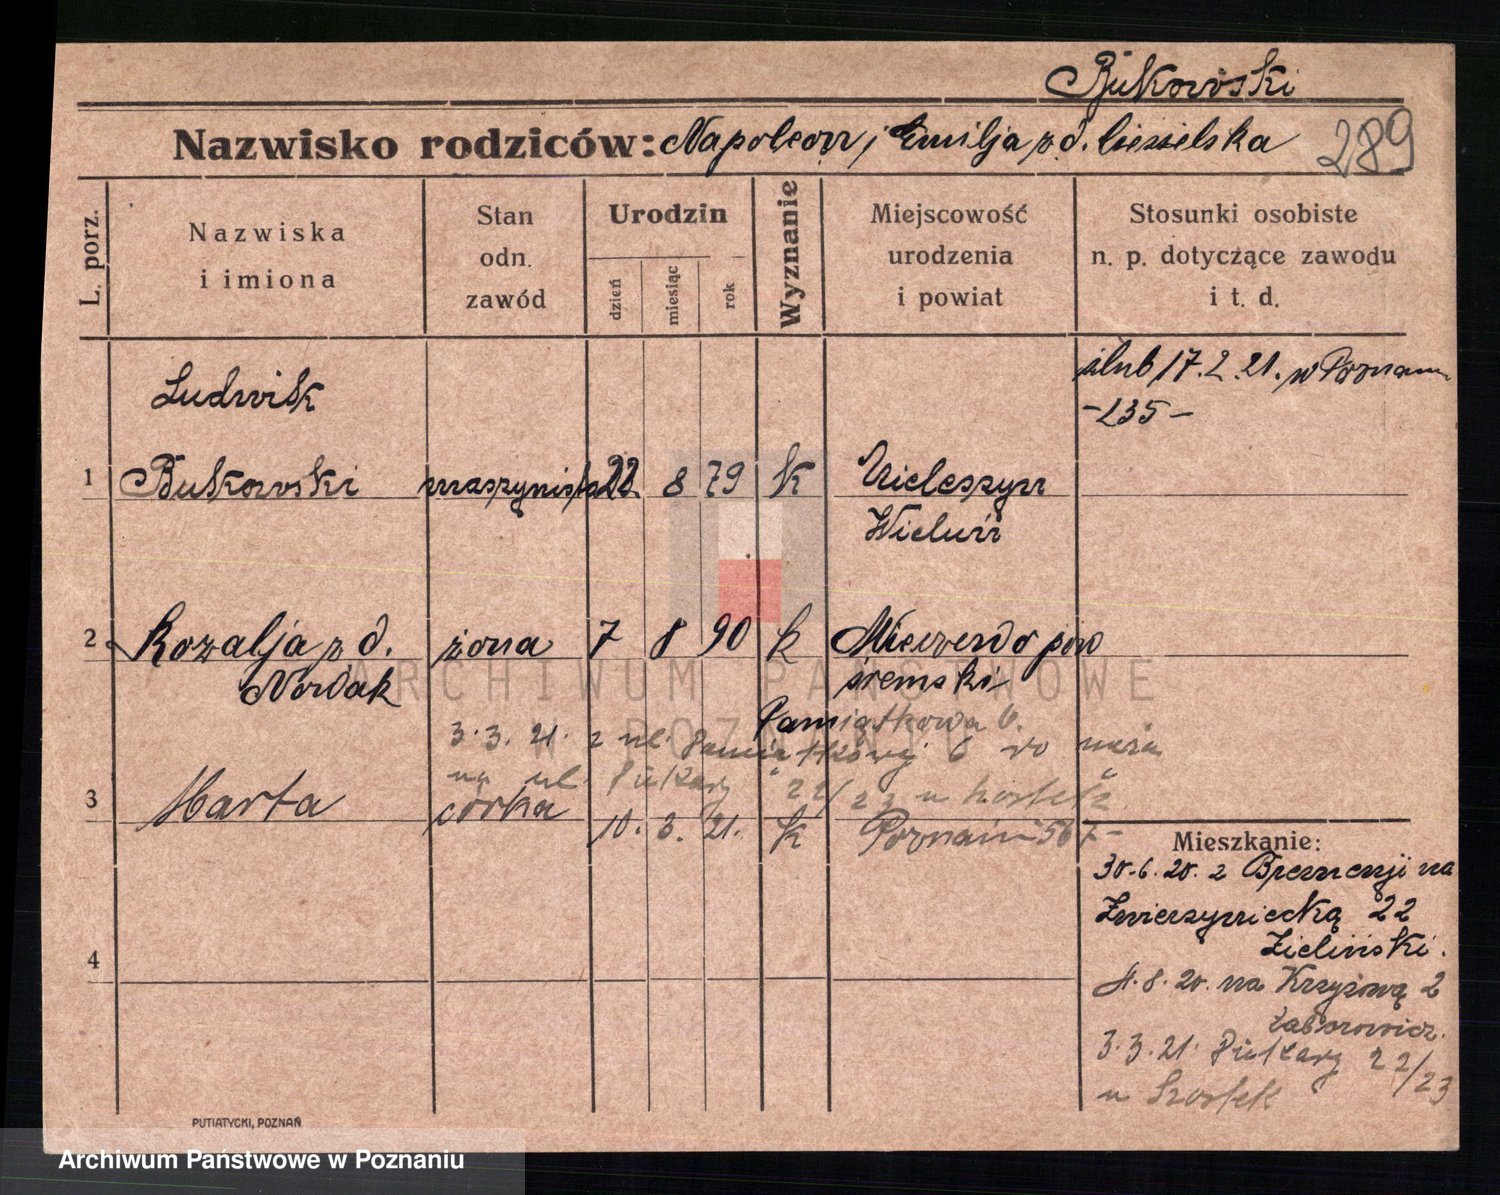 Bukowski
Nazwisko rodziców: Napoleon i Emilja z d.
289
L. porz.
Nazwiska
i imiona
Stan
odn.
zawód
Urodzin
dzień
miesiąc
rok
Wyznanie
Miejscowość
urodzenia
i powiat
Stosunki osobiste
n. p. dotyczące zawodu
i t. d.
Ludwik
ślub 17.2.21. w Poznaniu
-235-
1 Bukowski maszynista 22 8 79 k
Wieluń
2 Rozalja z d. żona 7 8 90 k pow
Nowak śremski
Pamiątkowa 6.
3.3.21. z ul. Pamiątkowej 6 do męża
na ul. Piekary 22/23 u Szostek
3 Marta córka
10. 3. 21. k Poznań 567-
Mieszkanie:
30.6.20. z na
Zwierzyniecką 22
Zieliński.
4
8.20. na Krzyżową 2
3.3.21. Piekary 22/23
u Szostek
PUTIATYCKI, POZNAŃ
ARCHIWUM PAŃSTWOWE
W POZNANIU
Archiwum Państwowe w Poznaniu